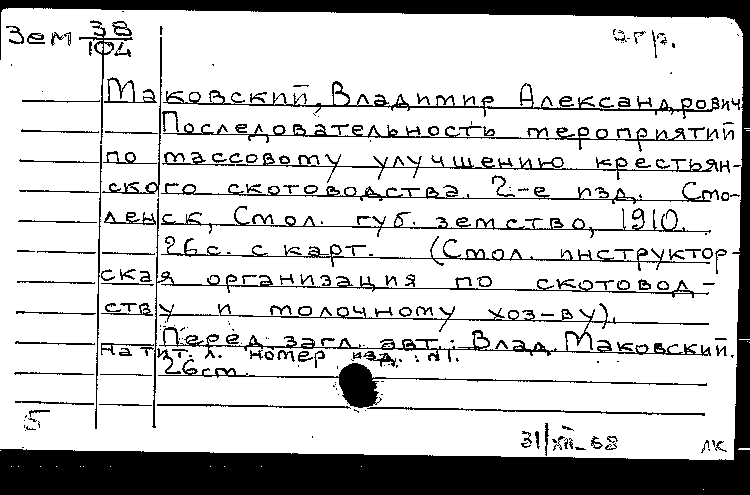 Зем 38/104 агр.
Маковский, Владимир Александрович
Последовательность мероприятий
по массовому улучшению крестьян-
ского скотоводства. 2-е изд. Смо-
ленск, Смол. губ. земство, 1910.
26 с. с карт. (Смол. инструктор-
ская организация по скотовод-
ству и молочному хоз-ву).
Перед загл. авт.: Влад. Маковский.
На тит. л. номер изд.: №1.
26 см.
5
31/XII-68 ЛК